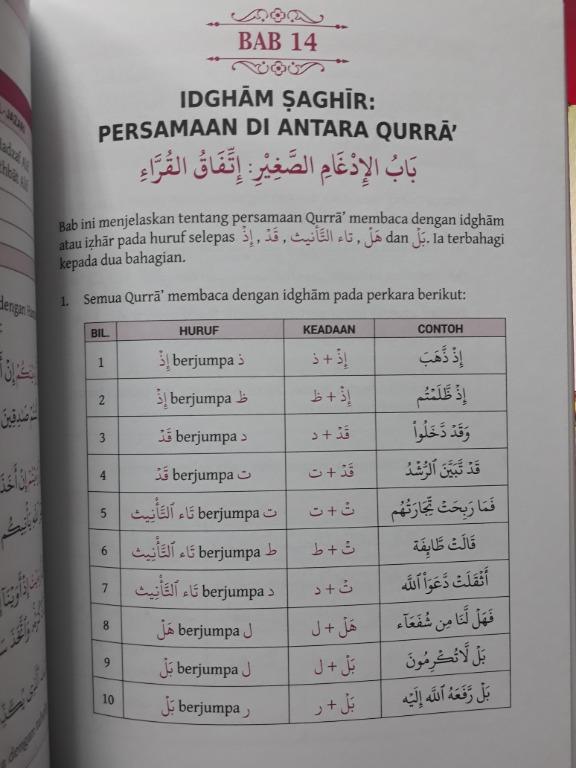 BAB 14
IDGHĀM ṢAGHĪR:
PERSAMAAN DI ANTARA QURRĀ’
بَابُ الإِدْغَامِ الصَّغِيْرِ: إِتِّفَاقُ القُرَّاءِ
Bab ini menjelaskan tentang persamaan Qurrā’ membaca dengan idghām
atau iẓhār pada huruf selepas إِذْ , قَدْ , تاء التَّأنيث , هَلْ dan بَلْ. Ia terbahagi
kepada dua bahagian.
1. Semua Qurrā’ membaca dengan idghām pada perkara berikut:
BIL. HURUF KEADAAN CONTOH
1 إِذْ berjumpa ذ إِذْ + ذ إِذ ذَّهَبَ
2 إِذْ berjumpa ظ إِذْ + ظ إِذ ظَّلَمْتُم
3 قَدْ berjumpa د قَدْ + د وَقَد دَّخَلُوا۟
4 قَدْ berjumpa ت قَدْ + ت قَد تَّبَيَّنَ ٱلرُّشْدُ
5 تَاء ٱلتَّأْنِيث berjumpa ت تْ + ت فَمَا رَبِحَت تِّجَارَتُهُم
6 تَاء ٱلتَّأْنِيث berjumpa ط تْ + ط قَالَت طَّآئِفَة
7 تَاء ٱلتَّأْنِيث berjumpa د تْ + د أَثْقَلَت دَّعَوَا ٱللَّه
8 هَلْ berjumpa ل هَلْ + ل فَهَل لَّنَا مِن شُفَعَآء
9 بَلْ berjumpa ل بَلْ + ل بَل لَّا تُكْرِمُونَ
10 بَلْ berjumpa ر بَلْ + ر بَل رَّفَعَهُ ٱللَّه إِلَيْه